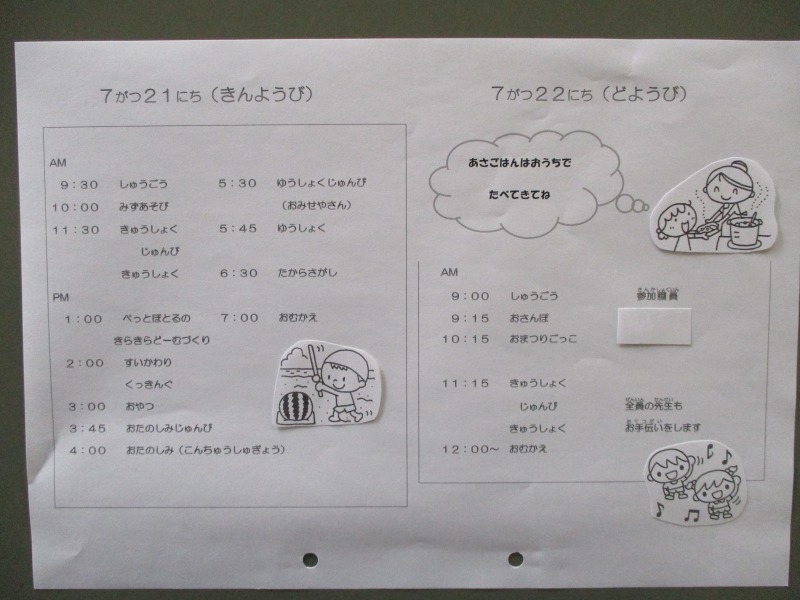 7がつ21にち（きんようび）
AM
9：30 しゅうごう
10：00 みずあそび
11：30 きゅうしょく
じゅんび
きゅうしょく
PM
1：00 ぺっとぼとるの
きらきらどーむづくり
2：00 すいかわり
くっきんぐ
3：00 おやつ
3：45 おたのしみじゅんび
4：00 おたのしみ（こんちゅうしゅぎょう）
5：30 ゆうしょくじゅんび
（おみせやさん）
5：45 ゆうしょく
6：30 たからさがし
7：00 おむかえ
7がつ22にち（どようび）
あさごはんはおうちで
たべてきてね
AM
9：00 しゅうごう
9：15 おさんぽ
10：15 おまつりごっこ
11：15 きゅうしょく
じゅんび
きゅうしょく
12：00～ おむかえ
さんかしょくいん
参加職員
ぜんいん せんせい
全員の先生も
おてつだい
お手伝いをします